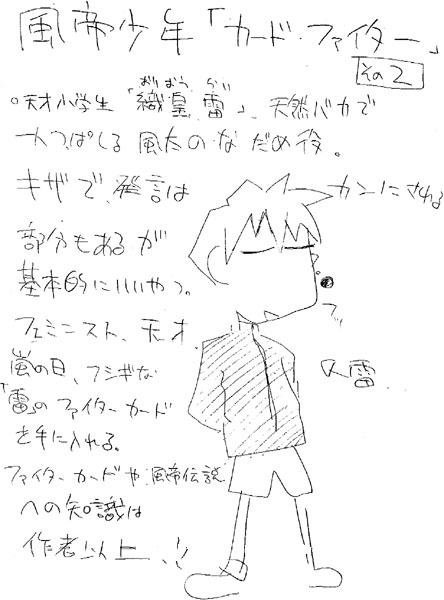 風帝少年「カード・ファイター」
その2
。天才小学生「織皇 雷」、天然バカで
おりおう らい
つっぱしる 風太の なだめ役。
キザで、発言は カンにさわる
部分もあるが
基本的にいいやつ。
フェミニスト、天才、
嵐の日、フシギな
「雷」のファイターカード
を手に入れる。
ファイターカードや 風帝伝説
への知識は
作者以上、!!
フッ
雷